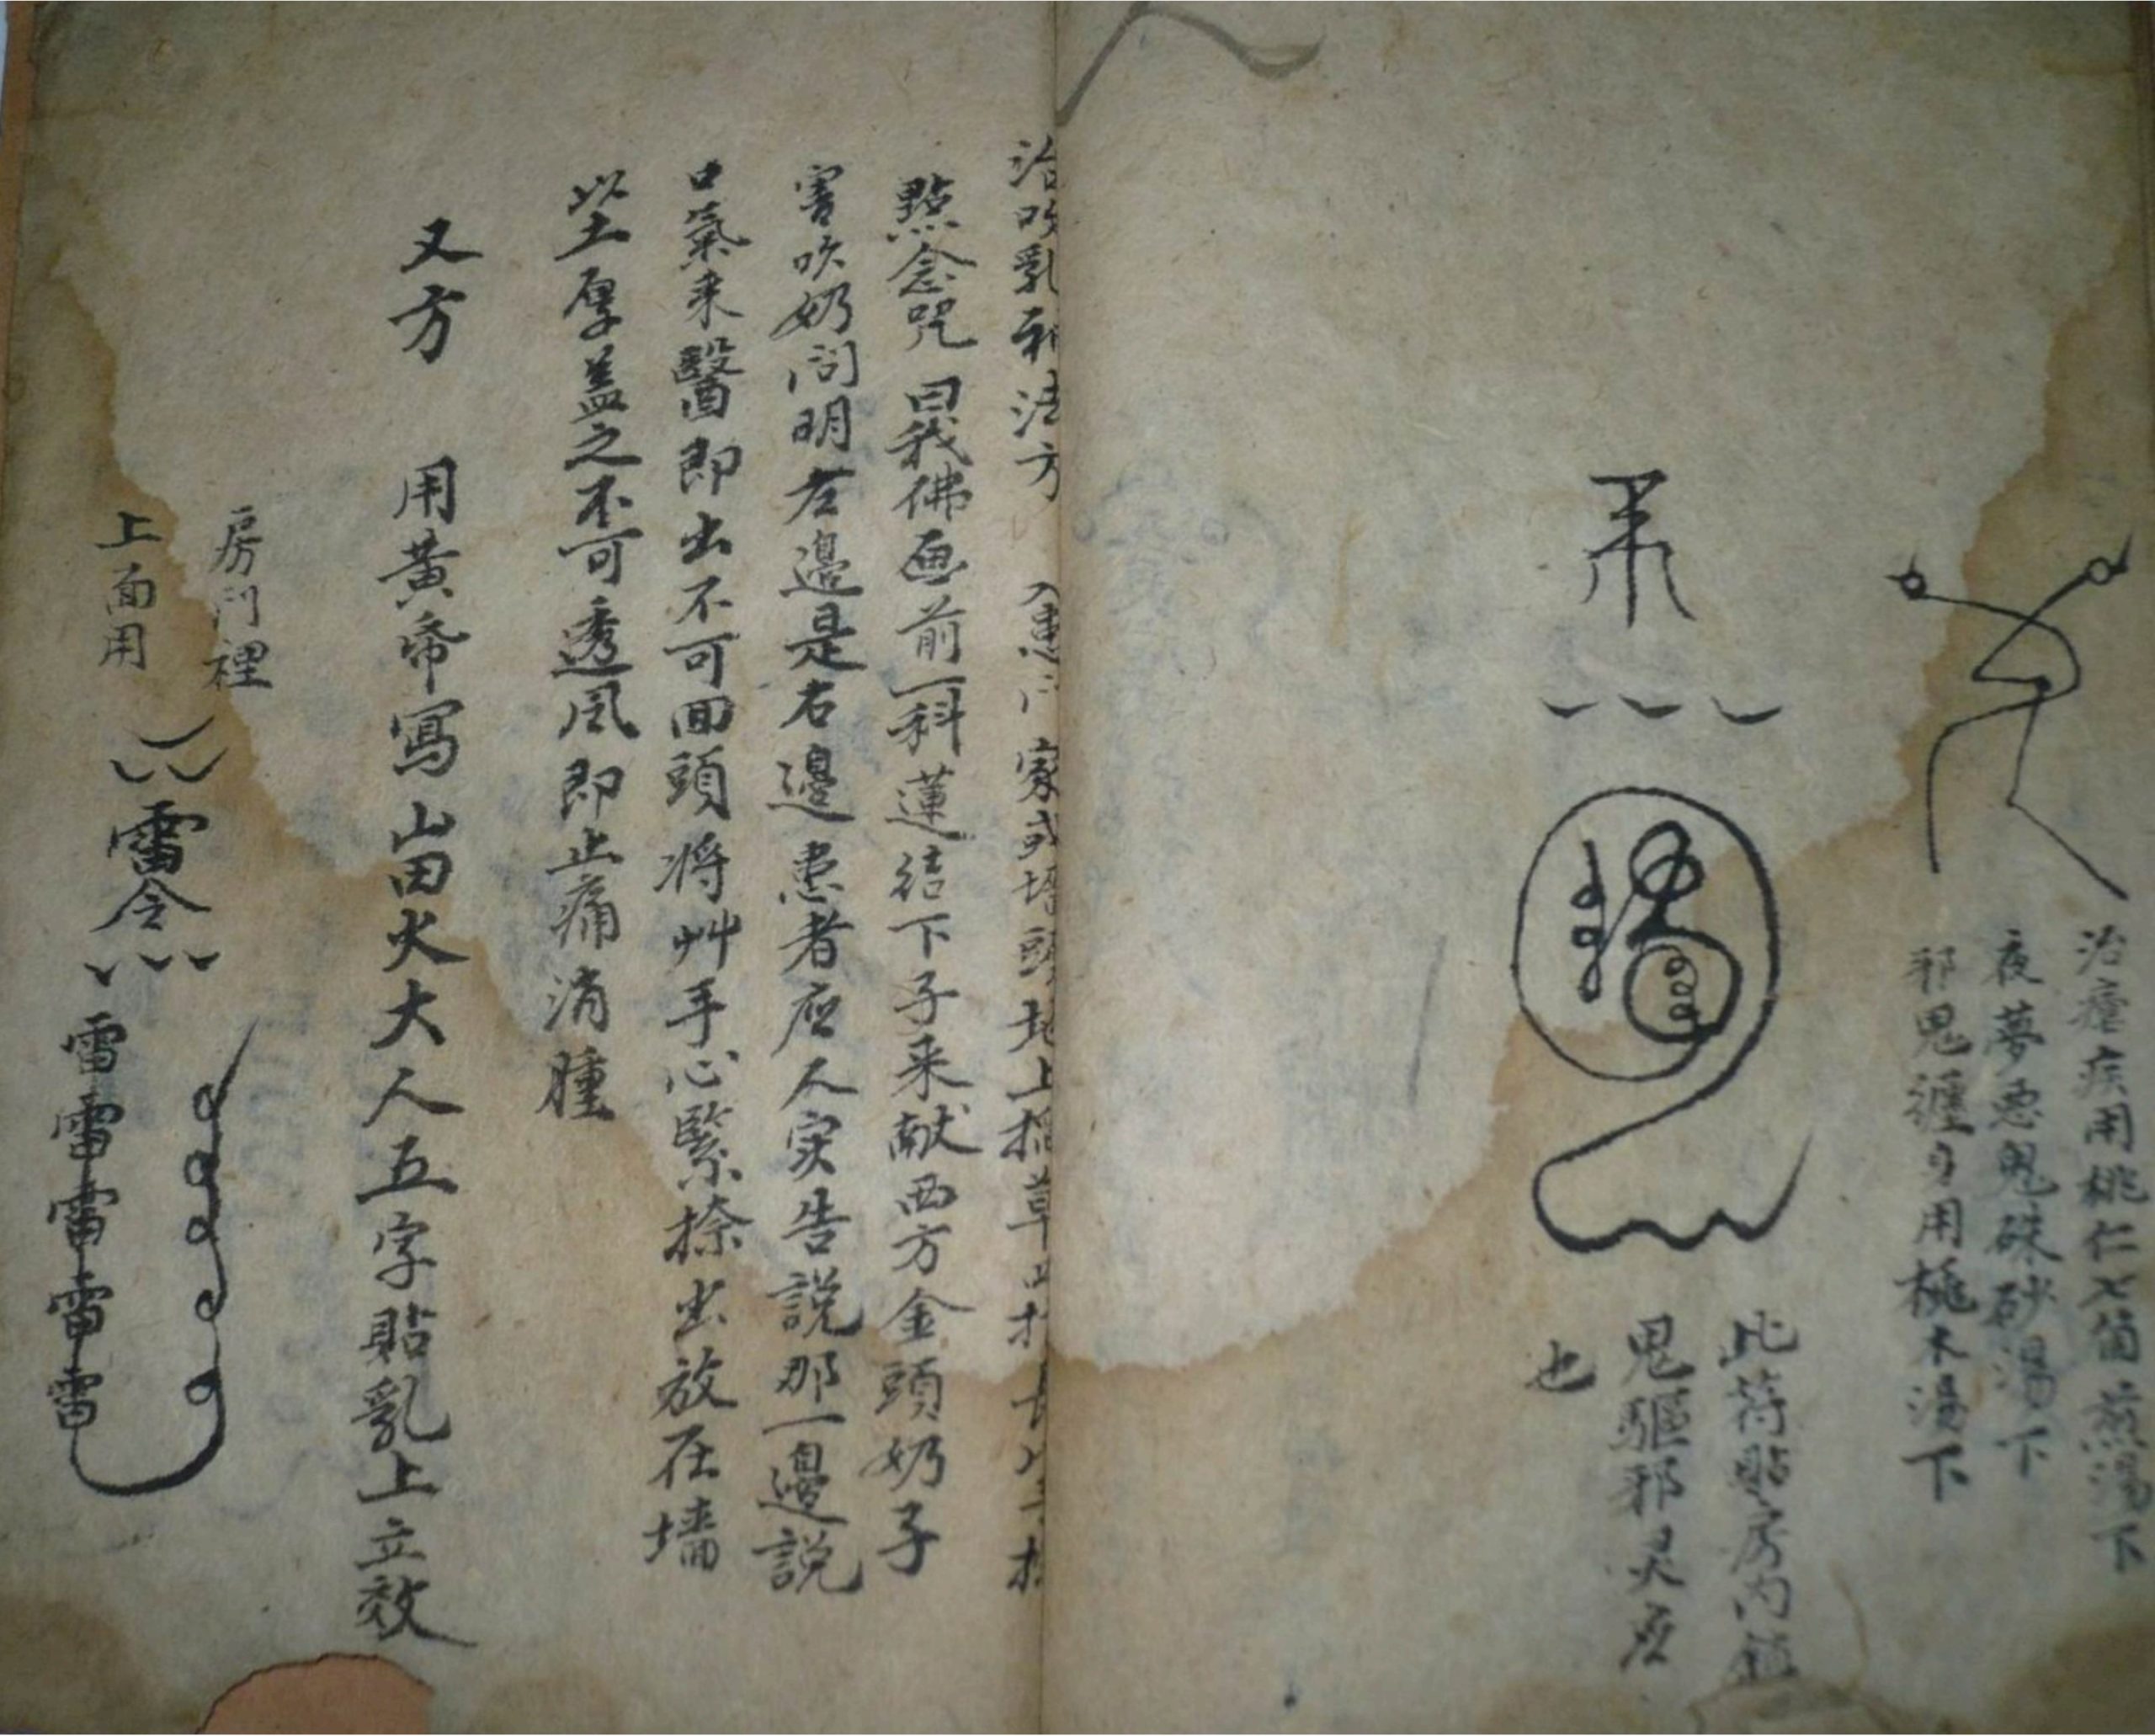 治瘧疾用桃仁七箇煎湯下
夜夢惡鬼硃砂湯下
邪鬼纏身用桃木湯下
此符貼房内鎮
鬼驅邪灵应
也
治吹乳 法方 入患 家或墙頭地上 草
照念咒 曰我佛画前一科蓮结下子来献西方金頭奶子
害吹奶问明左邊是右邊患者应人实告説那一邊説
口氣来醫即出不可回頭将艸手心緊捺出放在墙
以土厚盖之不可透風即止痛消腫
又方 用黄帋寫山田火大人五字貼乳上立效
房门裡
上面用
雷令
雷雷雷雷雷